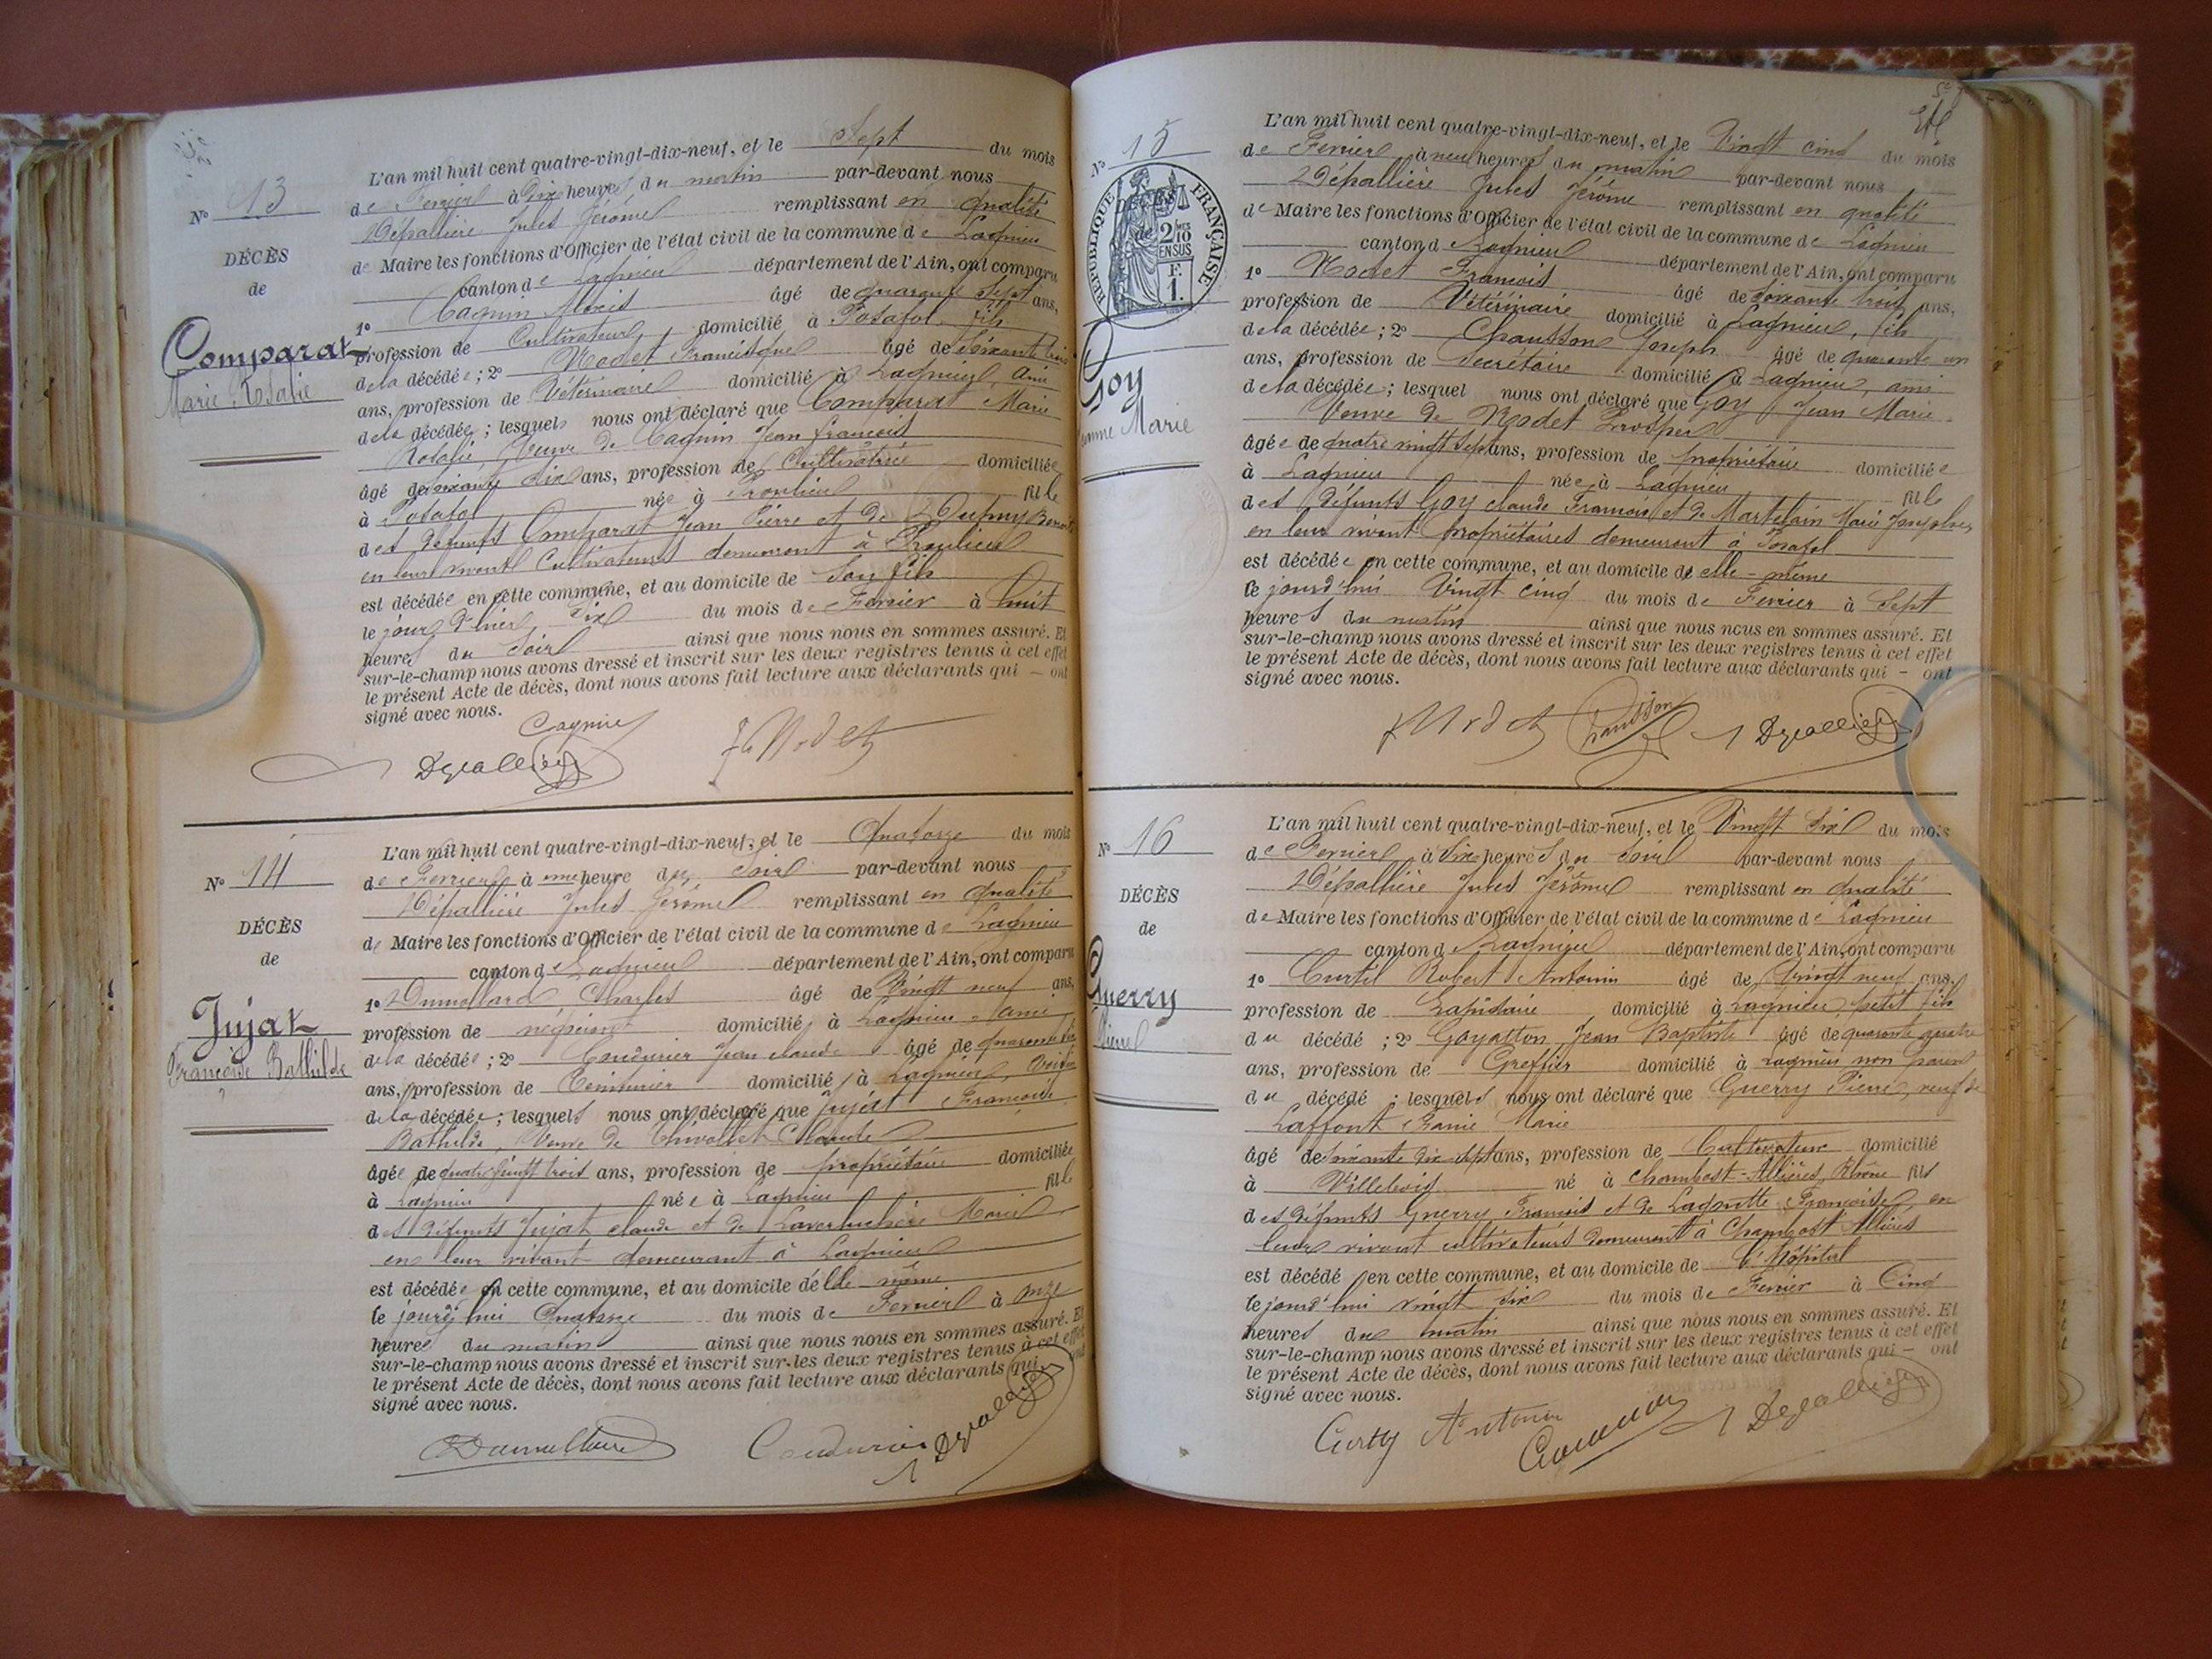 N° 13
DÉCÈS
de
Comparat
Marie Rosalie
L'an mil huit cent quatre-vingt-dix-neuf, et le Sept du mois
de Fevrier à Dix heures du matin par-devant nous
Dépallière Jules Jérôme remplissant en qualité
de Maire les fonctions d'Officier de l'état civil de la commune de Lagnieu
canton de Lagnieu département de l'Ain, ont comparu
1° Cagnin Alexis âgé de quarante Sept ans,
profession de Cultivateur domicilié à Posafol fils
de la décédée ; 2° Modet Francisque âgé de Soixante trois
ans, profession de Vétérinaire domicilié à Lagnieu, ami
de la décédée ; lesquels nous ont déclaré que Comparat Marie
Rosalie, Veuve de Cagnin Jean françois
âgé de soixante dix ans, profession de Cultivatrice domiciliée
à Posafol née à Proulieu fille
des défunts Comparat Jean Pierre et de Dupuy Benoite
en leur vivant Cultivateurs demeurant à Proulieu
est décédée en cette commune, et au domicile de Son fils
le jour d'hier Six du mois de Fevrier à huit
heures du Soir ainsi que nous nous en sommes assuré. Et
sur-le-champ nous avons dressé et inscrit sur les deux registres tenus à cet effet
le présent Acte de décès, dont nous avons fait lecture aux déclarants qui - ont
signé avec nous.
Cagnin
Depallière
F Modet
N° 14
DÉCÈS
de
Jujat
Françoise Bathilde
L'an mil huit cent quatre-vingt-dix-neuf, et le Quatorze du mois
de Fevrier à une heure du Soir par-devant nous
Dépallière Jules Jérôme remplissant en qualité
de Maire les fonctions d'Officier de l'état civil de la commune de Lagnieu
canton de Lagnieu département de l'Ain, ont comparu
1° Dumollard Charles âgé de Vingt neuf ans,
profession de négociant domicilié à Lagnieu ami
de la décédée ; 2° Coudurier Jean claude âgé de quarante
ans, profession de domicilié à Lagnieu, Voisin
de la décédée ; lesquels nous ont déclaré que Jujat Françoise
Bathilde, Veuve de Chivollet Claude
âgée de quatre vingt trois ans, profession de propriétaire domiciliée
à Lagnieu née à Lagnieu fille
des défunts Jujat claude et de Marie
en leur vivant demeurant à Lagnieu
est décédée en cette commune, et au domicile d'elle même
le jourd'hui Quatorze du mois de Fevrier à onze
heures du matin ainsi que nous nous en sommes assuré. Et
sur-le-champ nous avons dressé et inscrit sur les deux registres tenus à cet effet
le présent Acte de décès, dont nous avons fait lecture aux déclarants qui ont
signé avec nous.
Coudurier
Depallière
N° 15
RÉPUBLIQUE FRANÇAISE
2/10
EN SUS
F.
1.
Goy
Jeanne Marie
L'an mil huit cent quatre-vingt-dix-neuf, et le Vingt cinq du mois
de Fevrier à neuf heures du matin par-devant nous
Dépallière Jules Jérôme remplissant en qualité
de Maire les fonctions d'Officier de l'état civil de la commune de Lagnieu
canton d Lagnieu département de l'Ain, ont comparu
1° Modet François âgé de Soixante trois ans,
profession de Vétérinaire domicilié à Lagnieu, fils
de la décédée ; 2° Chausson Joseph âgé de quarante un
ans, profession de Secrétaire domicilié à Lagnieu, ami
de la décédée ; lesquel nous ont déclaré que Goy Jean Marie
Veuve de Modet Prosper
âgée de quatre vingt Sept ans, profession de propriétaire domiciliée
à Lagnieu née à Lagnieu fille
des Défunts Goy claude François et de Martelain Marie
en leur vivant propriétaires demeurant à Posafol
est décédée en cette commune, et au domicile de elle-même
le jourd'hui Vingt cinq du mois de Fevrier à Sept
heures du matin ainsi que nous nous en sommes assuré. Et
sur-le-champ nous avons dressé et inscrit sur les deux registres tenus à cet effet
le présent Acte de décès, dont nous avons fait lecture aux déclarants qui - ont
signé avec nous.
F Modet Chausson Depallière
N° 16
DÉCÈS
de
Guerry
Pierre
L'an mil huit cent quatre-vingt-dix-neuf, et le Vingt Six du mois
de Fevrier à Six heures du Soir par-devant nous
Dépallière Jules Jérôme remplissant en qualité
de Maire les fonctions d'Officier de l'état civil de la commune de Lagnieu
canton d Lagnieu département de l'Ain, ont comparu
1° Curtil Robert Antonin âgé de Vingt neuf ans,
profession de Lapidaire domicilié à Lagnieu, petit fils
du décédé ; 2° Gayatton Jean Baptiste âgé de quarante quatre
ans, profession de Greffier domicilié à Lagnieu non parent
du décédé ; lesquels nous ont déclaré que Guerry Pierre, veuf de
Laffont Marie
âgé de Soixante dix Sept ans, profession de Cultivateur domicilié
à Villebois né à Chambost-Allières Rhône fils
des défunts Guerry François et de Lagoutte Françoise en
leur vivant cultivateurs demeurant à Chambost Allières
est décédé en cette commune, et au domicile de l'Hôpital
le jourd'hui vingt six du mois de Fevrier à Cinq
heures du matin ainsi que nous nous en sommes assuré. Et
sur-le-champ nous avons dressé et inscrit sur les deux registres tenus à cet effet
le présent Acte de décès, dont nous avons fait lecture aux déclarants qui - ont
signé avec nous.
Antonin
Depallière